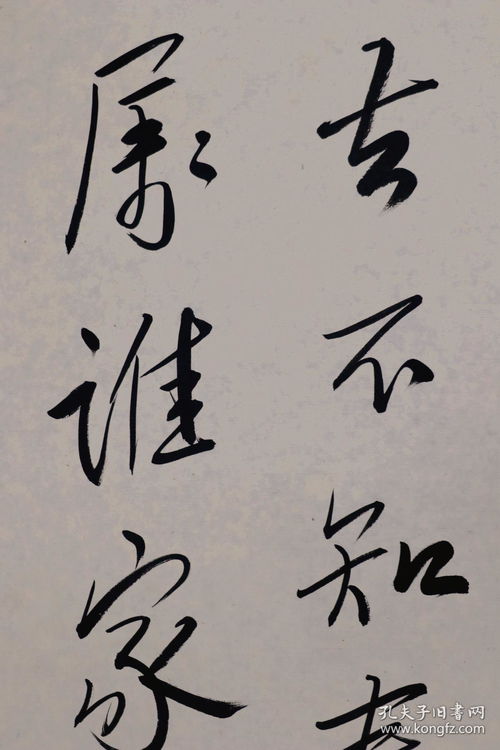 去不知
属谁家
孔夫子旧书网
www.kongfz.com